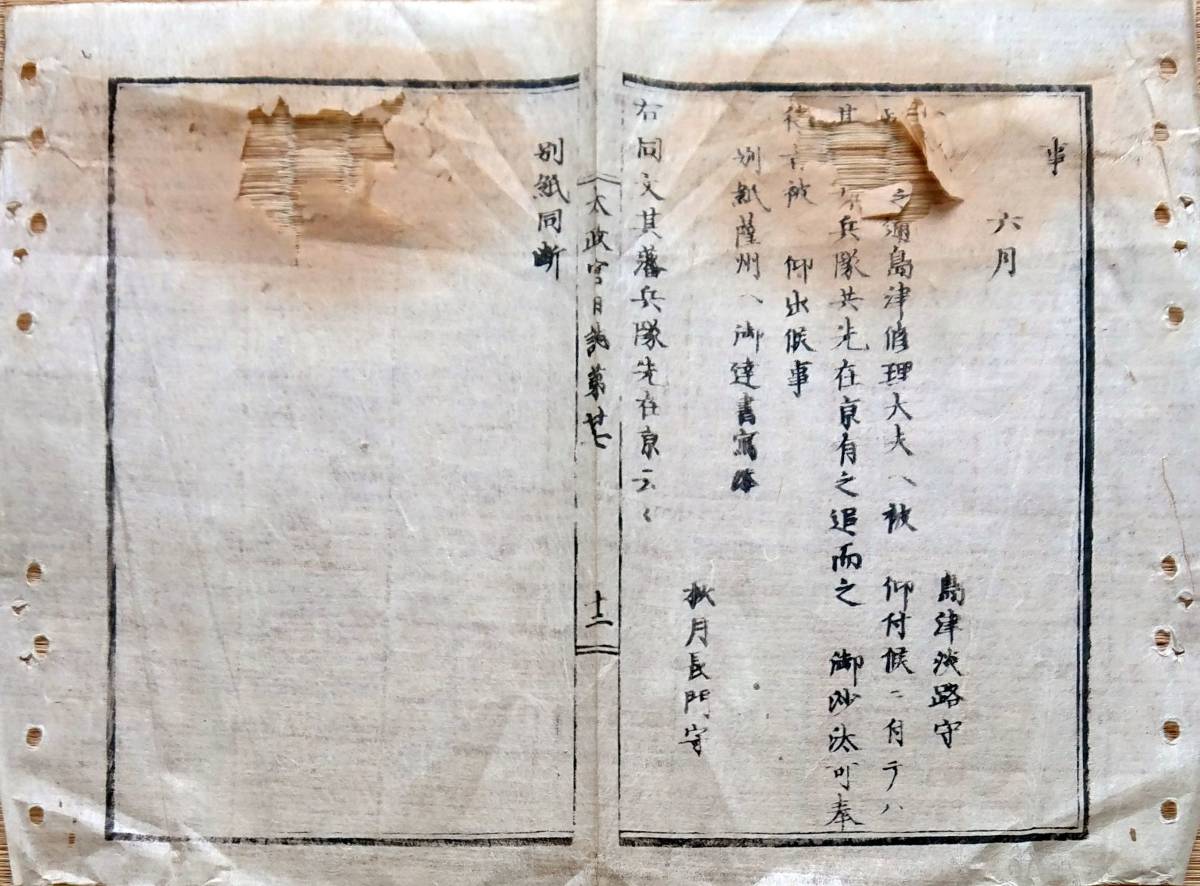 事
六月
島津淡路守
之通島津修理大夫ヘ被 仰付候ニ付テハ
其 兵隊共先在京有之追而之 御沙汰可奉
待旨被 仰出候事
別紙薩州ヘ御達書寫略
秋月長門守
右同文其藩兵隊先在京云々
太政官日誌第廿七 十二
別紙同斷